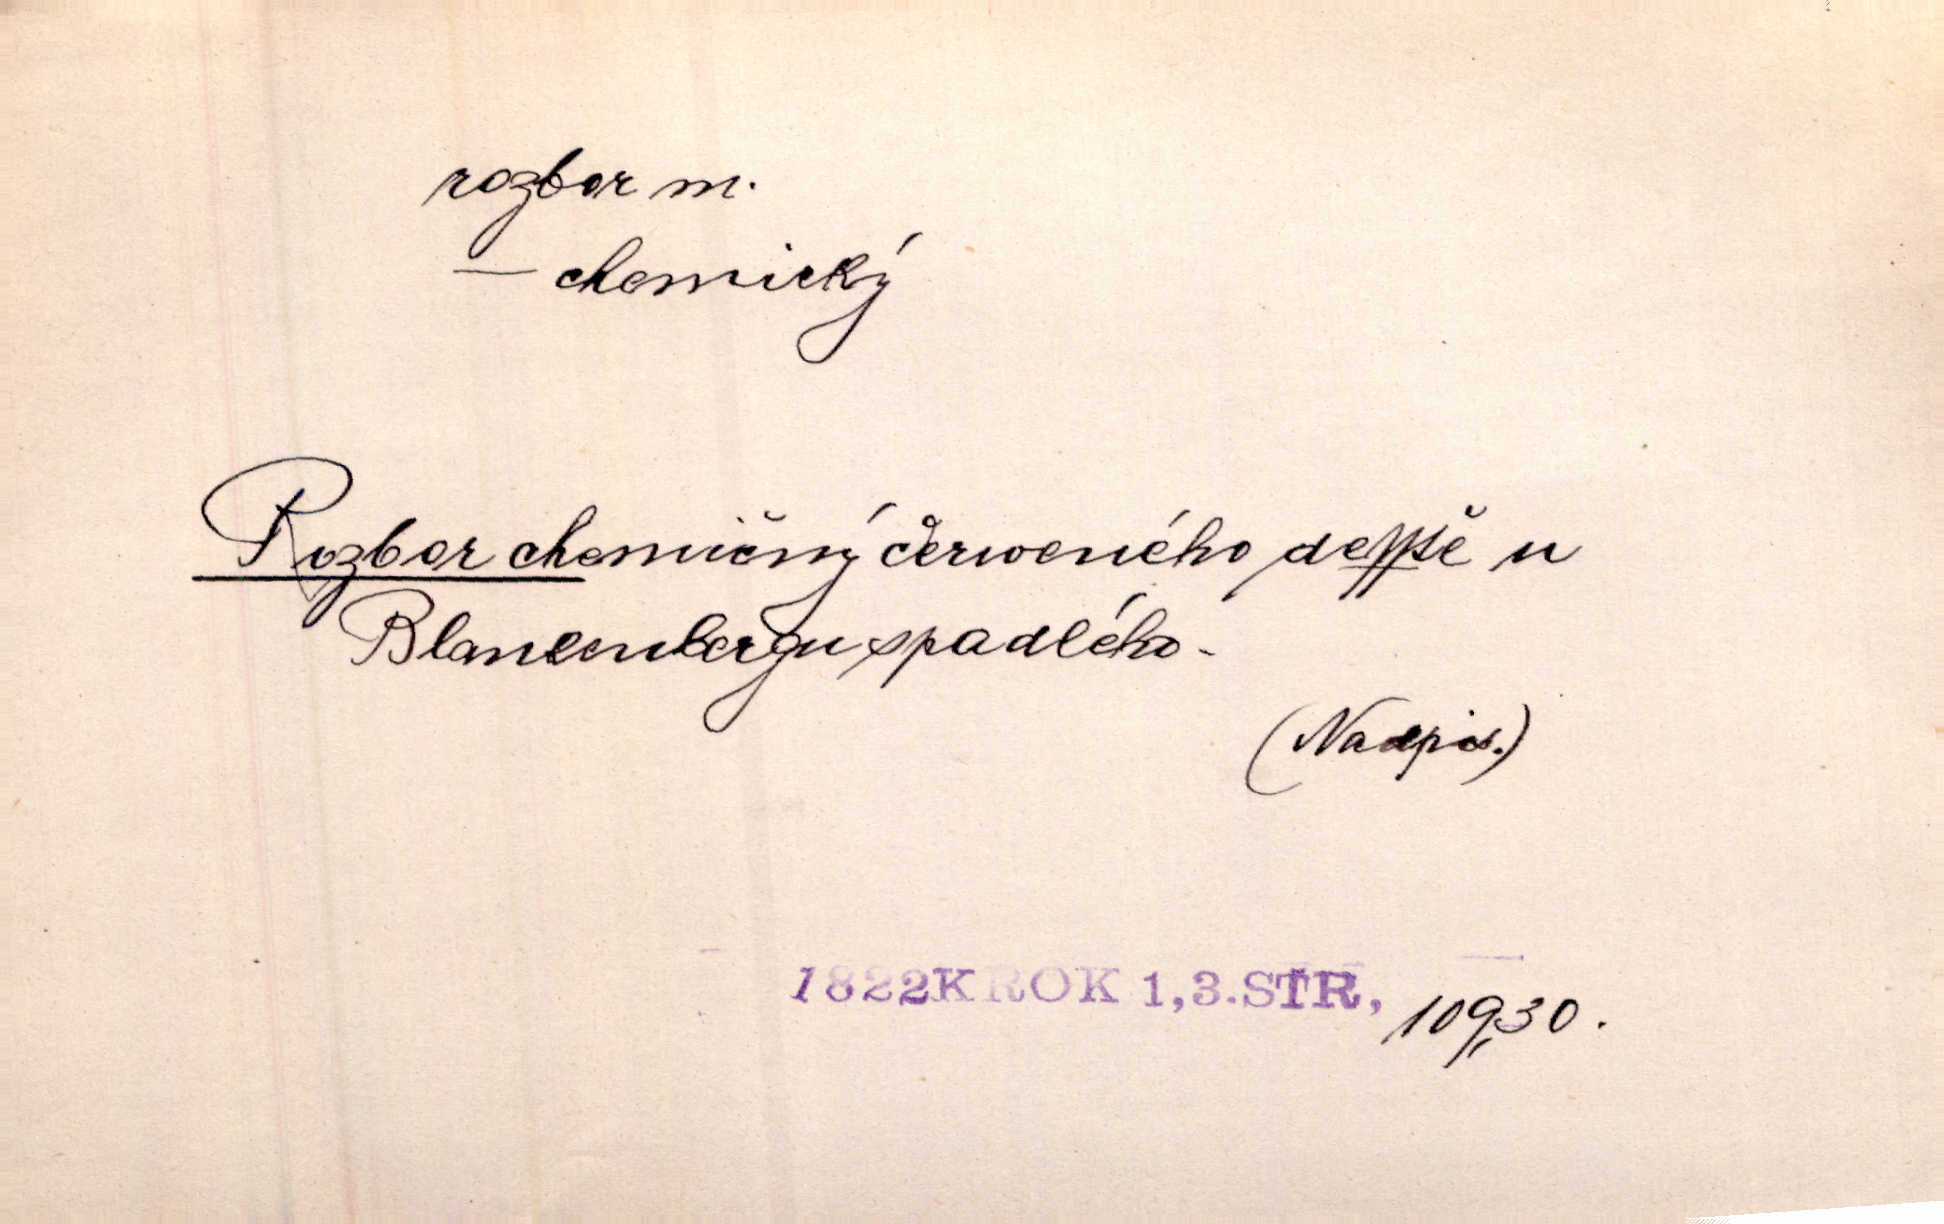 rozbor m.
— chemický
Rozbor chemičný červeného deště u
Blankenbergu spadlého.
(Nadpis.)
1822 KROK 1,3. STR, 109,30.